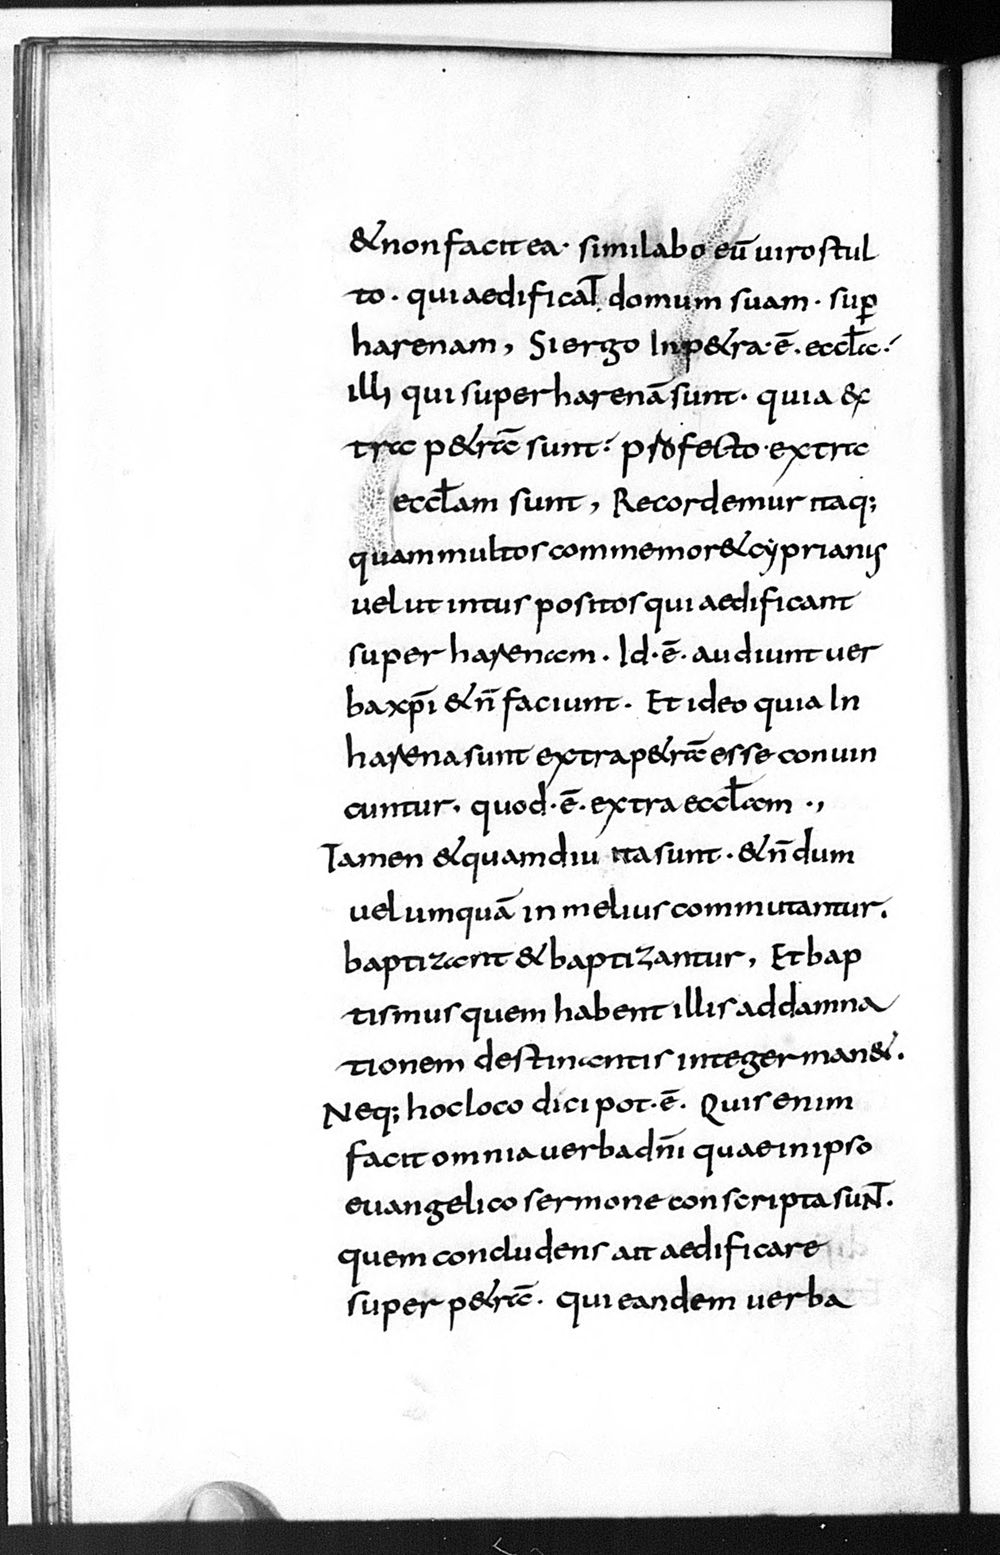 & non facit ea· similabo eū uiro stul
to· qui aedificat domum suam· sup̄
harenam, Si ergo In p&ra·ē·eccl̄a·
illi qui super harenā sunt· quia &
tra p&rā sunt· profecto·extra
eccl̄am sunt, Recordemur itaq;
quam multos commemor& cyprianus
uelut intus positos qui aedificant
super harenam· Id·ē·audiunt uer
ba xp̄i & n̄ faciunt· Et ideo quia In
harena sunt extra p&rā esse conuin
cuntur· quod·ē·extra eccl̄am·,
Tamen & quamdiu ita sunt·& n̄ dum
uel umquā in melius commutantur.
baptizant & baptizantur, Et bap
tismus quem habent illis ad damna
tionem destinantis integer man&.
Neq; hoc loco dici pot·ē· Quis enim
facit omnia uerba dn̄i quae in ipso
euangelico sermone conscripta sunt.
quem concludens ait aedificare
super p&rā· qui eandem uerba